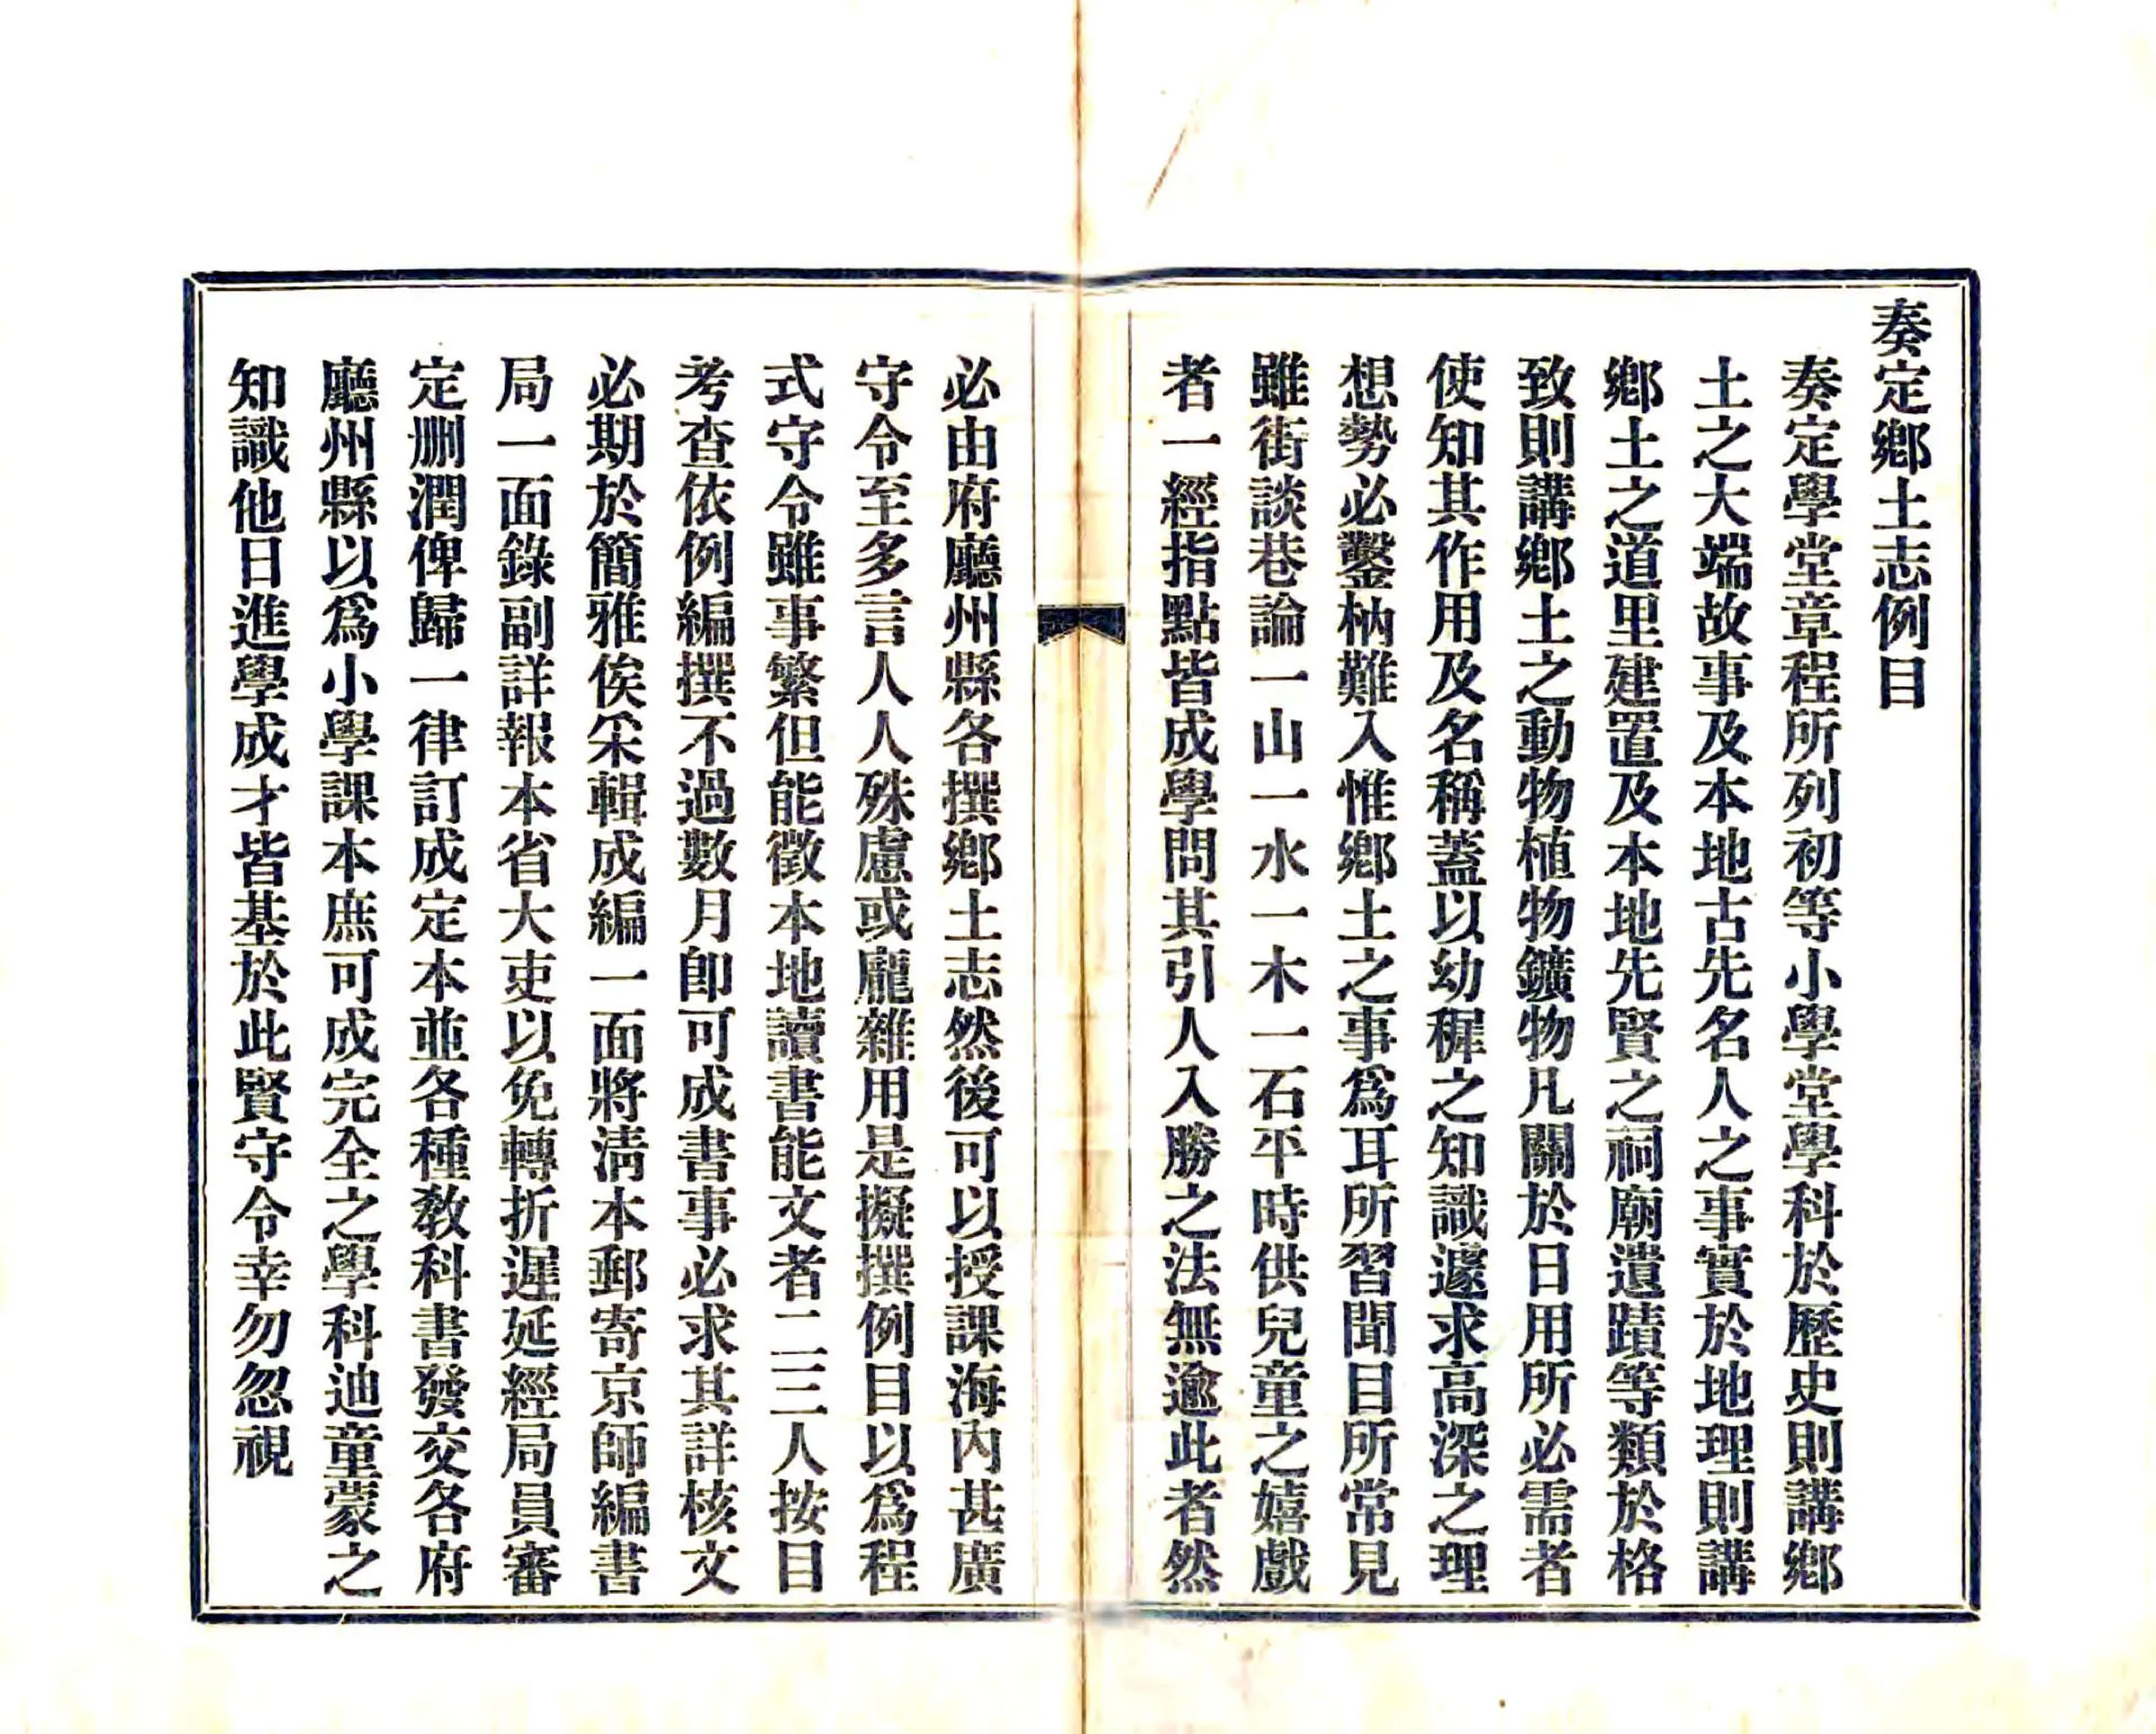 奏定鄉土志例目
奏定學堂章程所列初等小學堂學科於歷史則講鄉
土之大端故事及本地古先名人之事實於地理則講
鄉土之道里建置及本地先賢之祠廟遺蹟等類於格
致則講鄉土之動物植物鑛物凡關於日用所必需者
使知其作用及名稱蓋以幼穉之知識遽求高深之理
想勢必鑿枘難入惟鄉土之事爲耳所習聞目所常見
雖街談巷論一山一水一木一石平時供兒童之嬉戲
者一經指點皆成學問其引人入勝之法無逾此者然
必由府廳州縣各撰鄉土志然後可以授課海內甚廣
守令至多言人人殊慮或龐雜用是擬撰例目以爲程
式守令雖事繁但能徵本地讀書能文者二三人按目
考查依例編撰不過數月卽可成書事必求其詳核文
必期於簡雅俟采輯成編一面將清本郵寄京師編書
局一面錄副詳報本省大吏以免轉折遲延經局員審
定刪潤俾歸一律訂成定本並各種敎科書發交各府
廳州縣以爲小學課本庶可成完全之學科迪童蒙之
知識他日進學成才皆基於此賢守令幸勿忽視